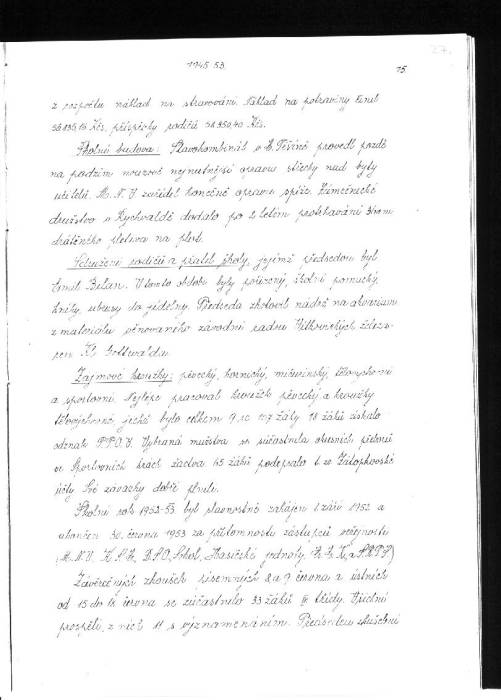 1945 53.
15.
z rozpočtu náklad na stravování. Náklad na potraviny činil
Kčs, příspěvky rodičů Kčs.
Školní budova: Stavokombinát v Č. Těšíně provedl pozdě
na podzim nejnutnější opravu střechy nad byty
učitelů. M.N.V. zařídil konečně opravu spíže. Zámečnické
družstvo v Rychvaldě dodalo po 2 letém protahování
drátěného pletiva na plot.
Sdružení rodičů a přátel školy, jejímž předsedou byl
Emil Bilan. V tomto období byly pořízeny, školní pomůcky,
knihy, ubrusy do jídelny. Předseda zhotovil nádrž na akvarium
z materiálu věnovaného závodní radou Vítkovických železá-
ren Kl. Gottwalda.
Zájmové kroužky: pěvecký, hornický, mičurinský, tělovýchovný
a sportovní. Nejlépe pracoval kroužek pěvecký a kroužky
tělovýchovné, jichž bylo celkem 9 se 107 žáky. 18 žáků získalo
odznak P.P.O.V. Vybraná mužstva se súčastnila okresních přeborů
ve Sportovních hrách žactva 45 žáků podepsalo t. zv. Zátopkovské
účty. Své závazky dobře plnili.
Školní rok 1952-53 byl slavnostně zahájen 1. září 1952 a
ukončen 30. června 1953 za přítomnosti zástupců veřejnosti
(M.N.V. K.S.Č., D.P.O., Sokol, Hasičské jednoty,
Závěrečných zkoušek písemných 8 a 9 června a ústních
od 15 do 18 června se zúčastnilo 33 žáků III třídy. Všichni
prospěli, z nich 11 s vyznamenáním. Předsedou zkušební